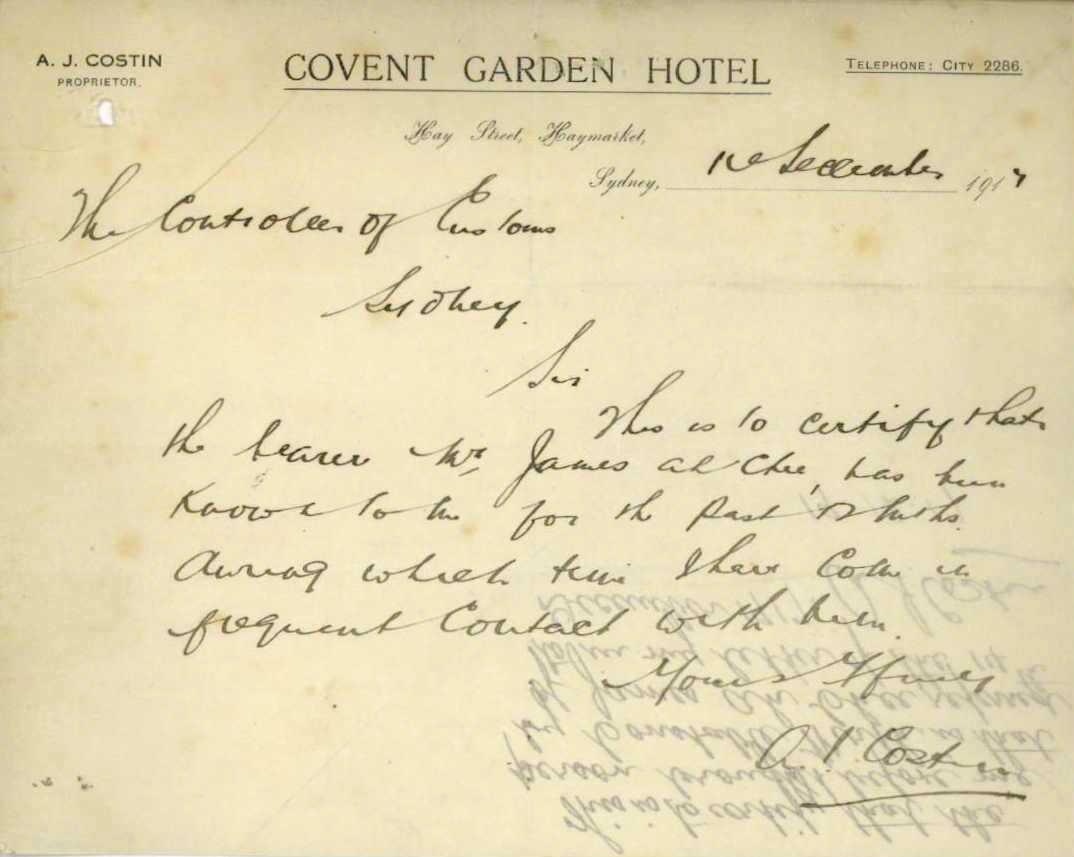 A. J. COSTIN
PROPRIETOR.
COVENT GARDEN HOTEL
TELEPHONE: CITY 2286.
Hay Street, Haymarket,
Sydney, December 1917
The Controller of Customs
Sydney.
Sir
This is to certify that
the bearer Mr James Ah Chee, has been
Known to me for the Past mths.
during which time I have Come in
frequent Contact with him.
Yours
A. J. Costin